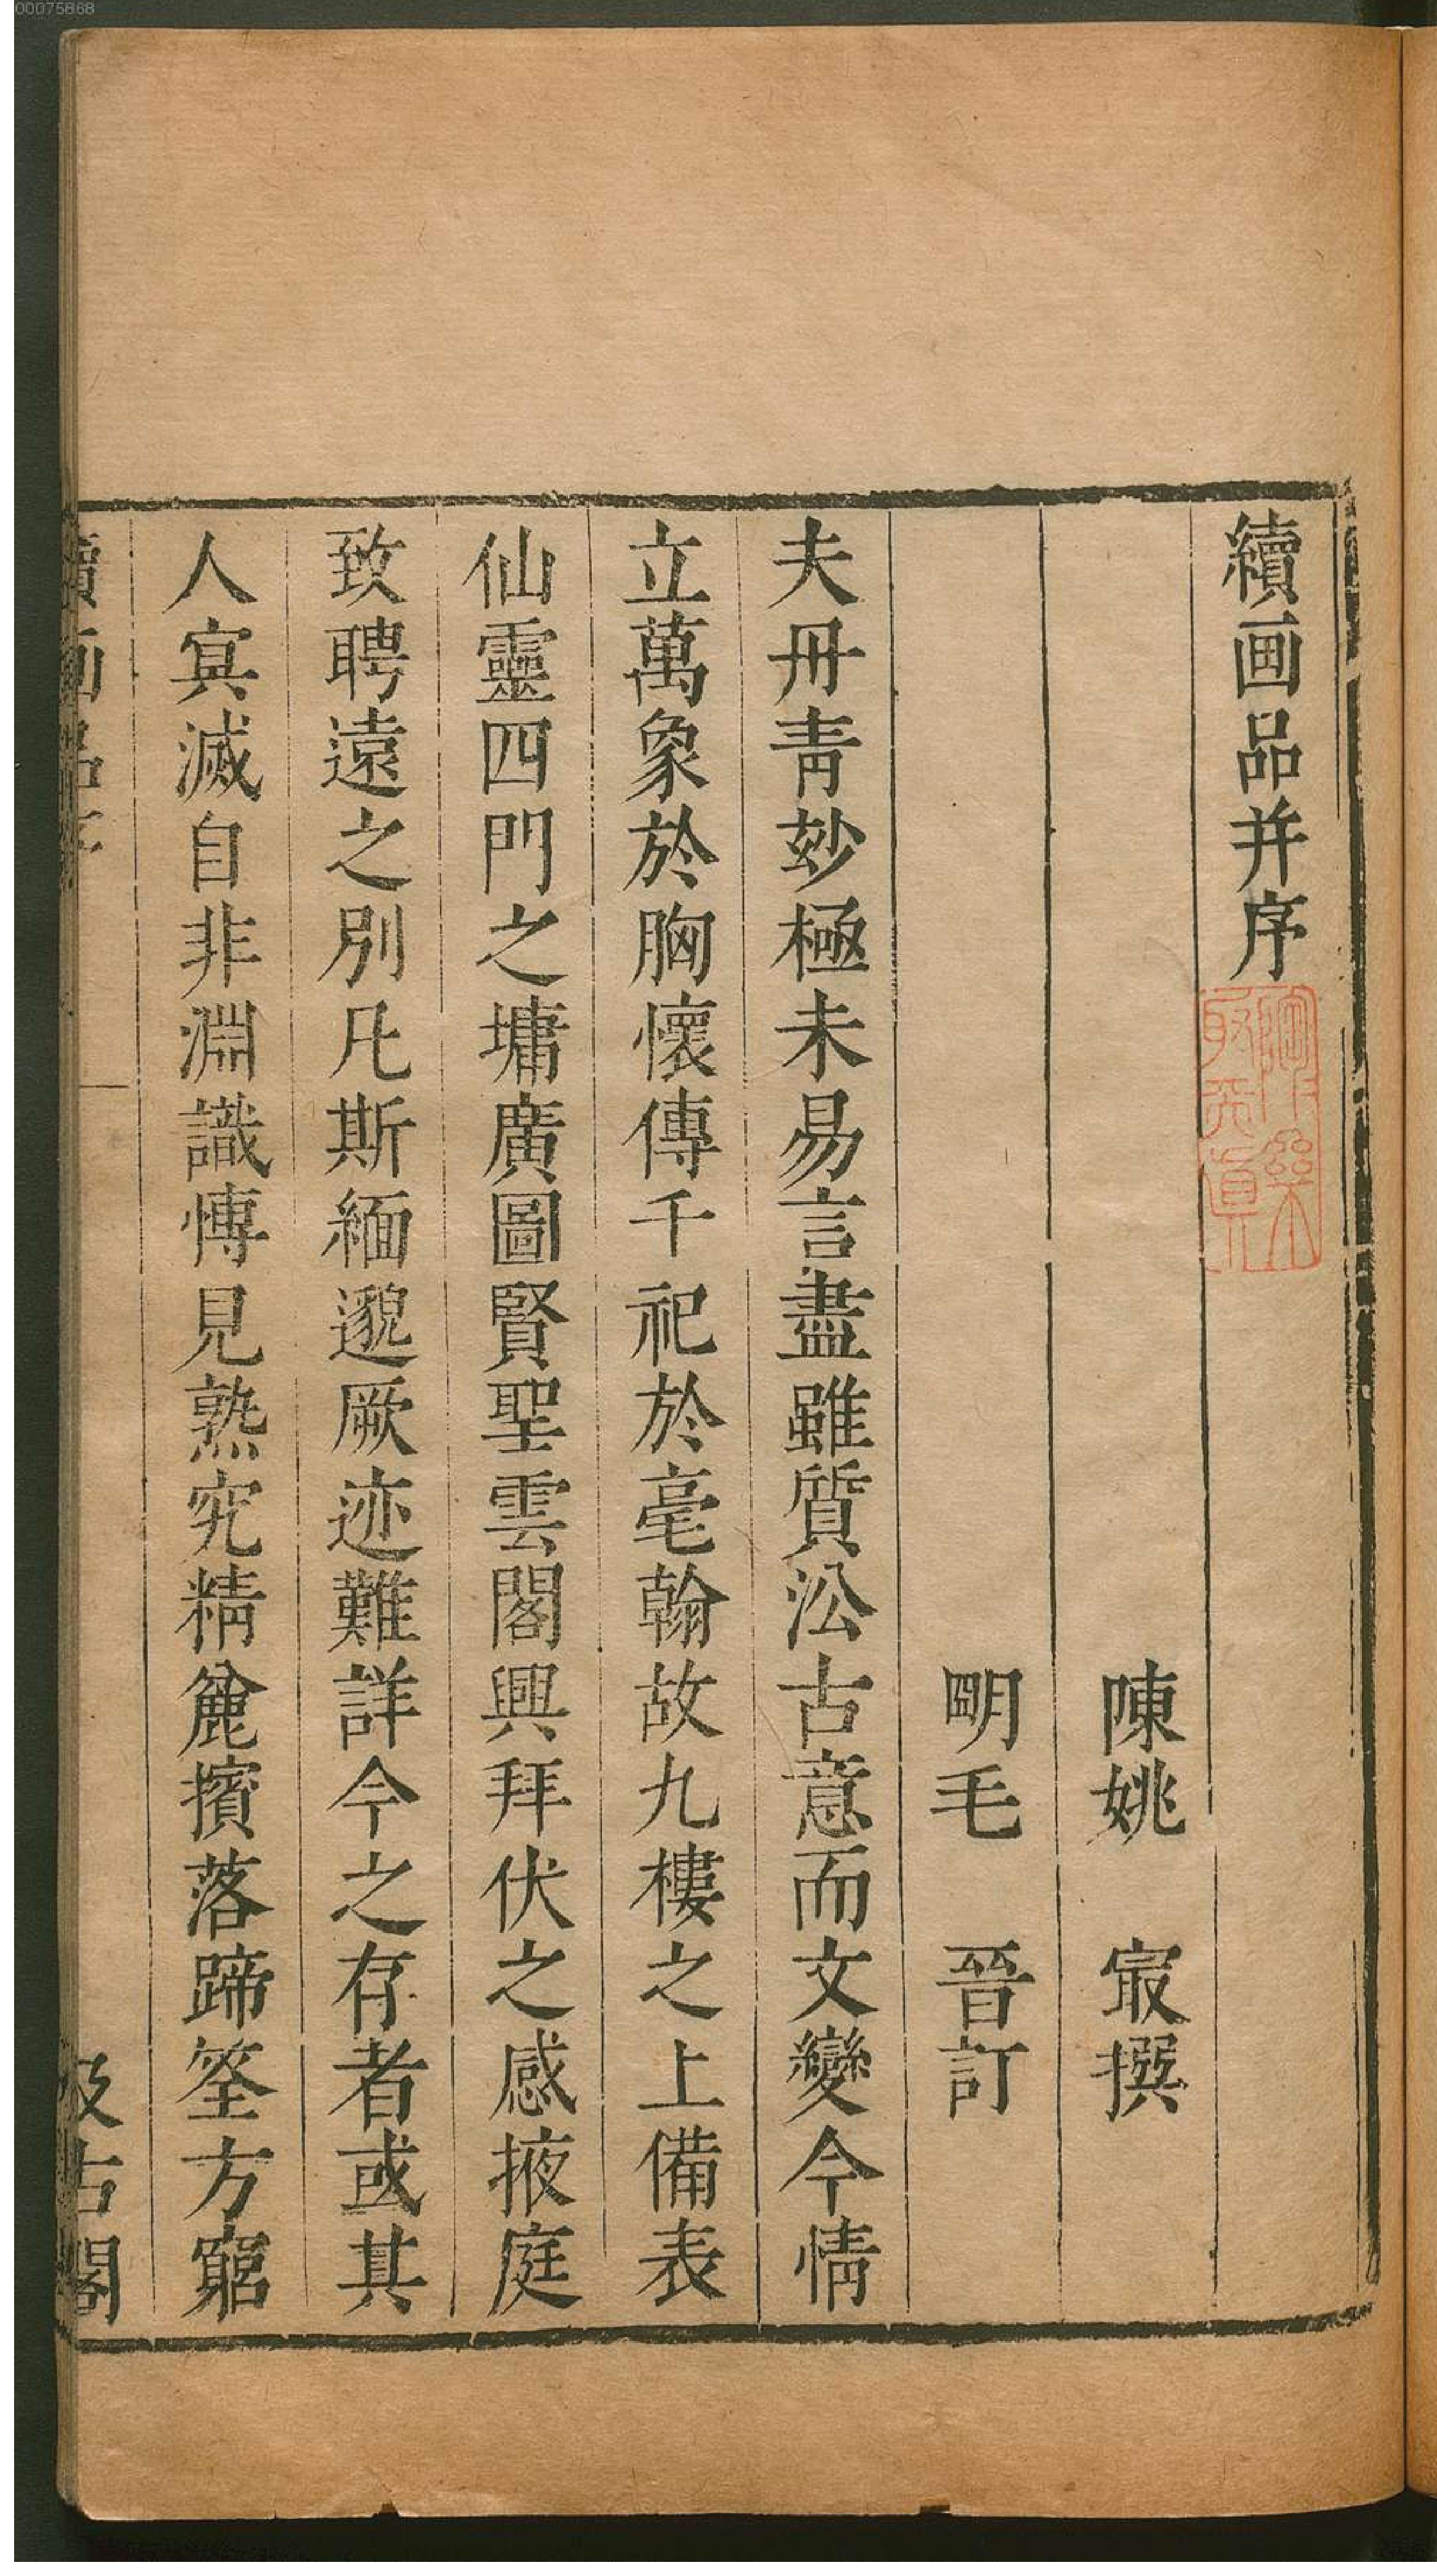 00075868
續画品并序
陳姚 寂撰
明毛 晉訂
夫丹青玅極未易言盡雖質㳂古意而文變今情
立萬象於胸懷傳千祀於毫翰故九樓之上備表
仙靈四門之墉廣圖賢聖雲閣興拜伏之感掖庭
致聘遠之別凡斯緬邈厥迹難詳今之存者或其
人冥滅自非淵識博見熟究精麄擯落蹄筌方窮
續画品序
汲古閣